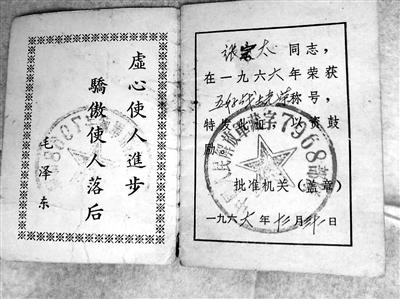 虛心使人進步
驕傲使人落后
毛泽东
张宏太同志，
在一九六六年荣获
五好战士光荣称号，
特发此证，以资鼓
励。
批准机关（盖章）
一九六六年十二月卅一日
中国人民解放军临字7968部